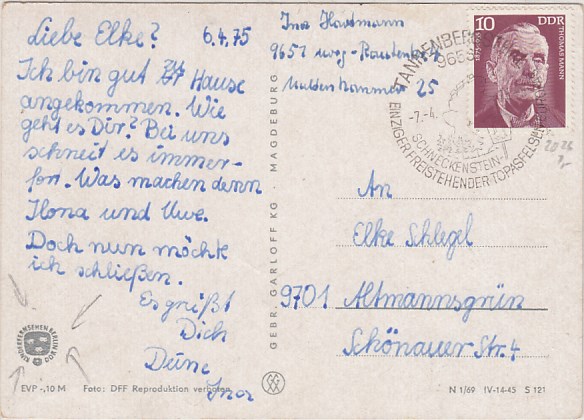 Liebe Elke? 6.4.75
Ich bin gut zu Hause
angekommen. Wie
geht es Dir? Bei uns
schneit es immer-
fort. Was machen denn
Ilona und Uwe.
Doch nun möchte
ich schließen.
Es grüßt
Dich
Deine
Ines
KINDERFERNSEHEN BERLIN
DDR
EVP -,10 M Foto: DFF Reproduktion verboten
GEBR. GARLOFF KG · MAGDEBURG
N 1/69 IV-14-45 S 121
Hartmann
9651
25
10 DDR
THOMAS MANN
1875-1955
TANNENBERG
965
-7.-4.
SCHNECKENSTEIN-
EINZIGER FREISTEHENDER TOPASFELSEN
An
Elke Schlegel
9701 Altmannsgrün
Schönauer Str. 4